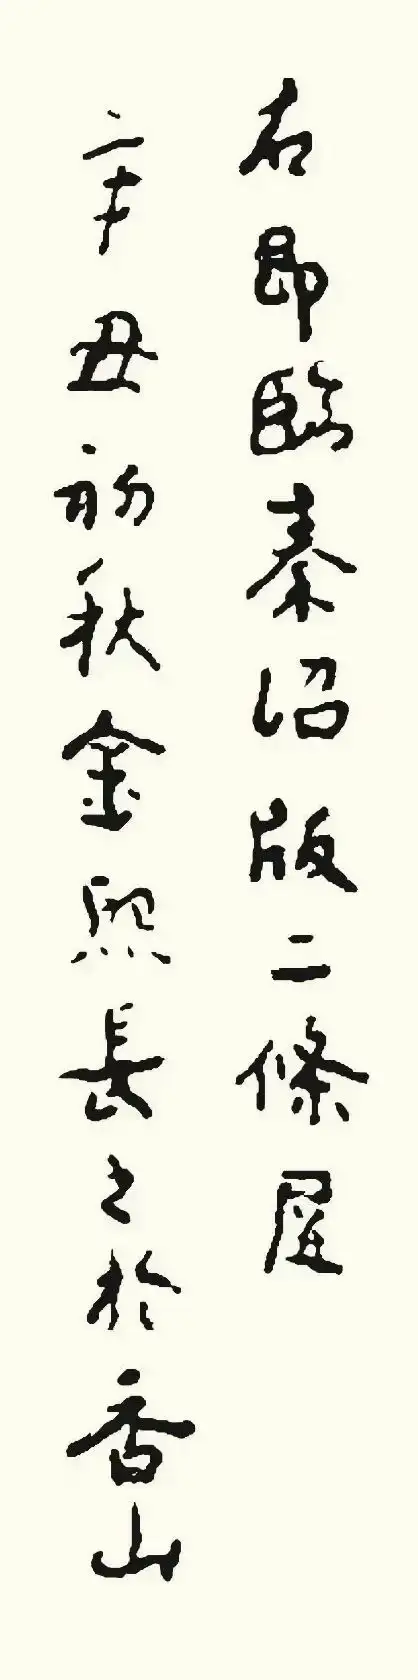 右即臨秦诏版二條屋
辛丑初秋金熙長之於香山